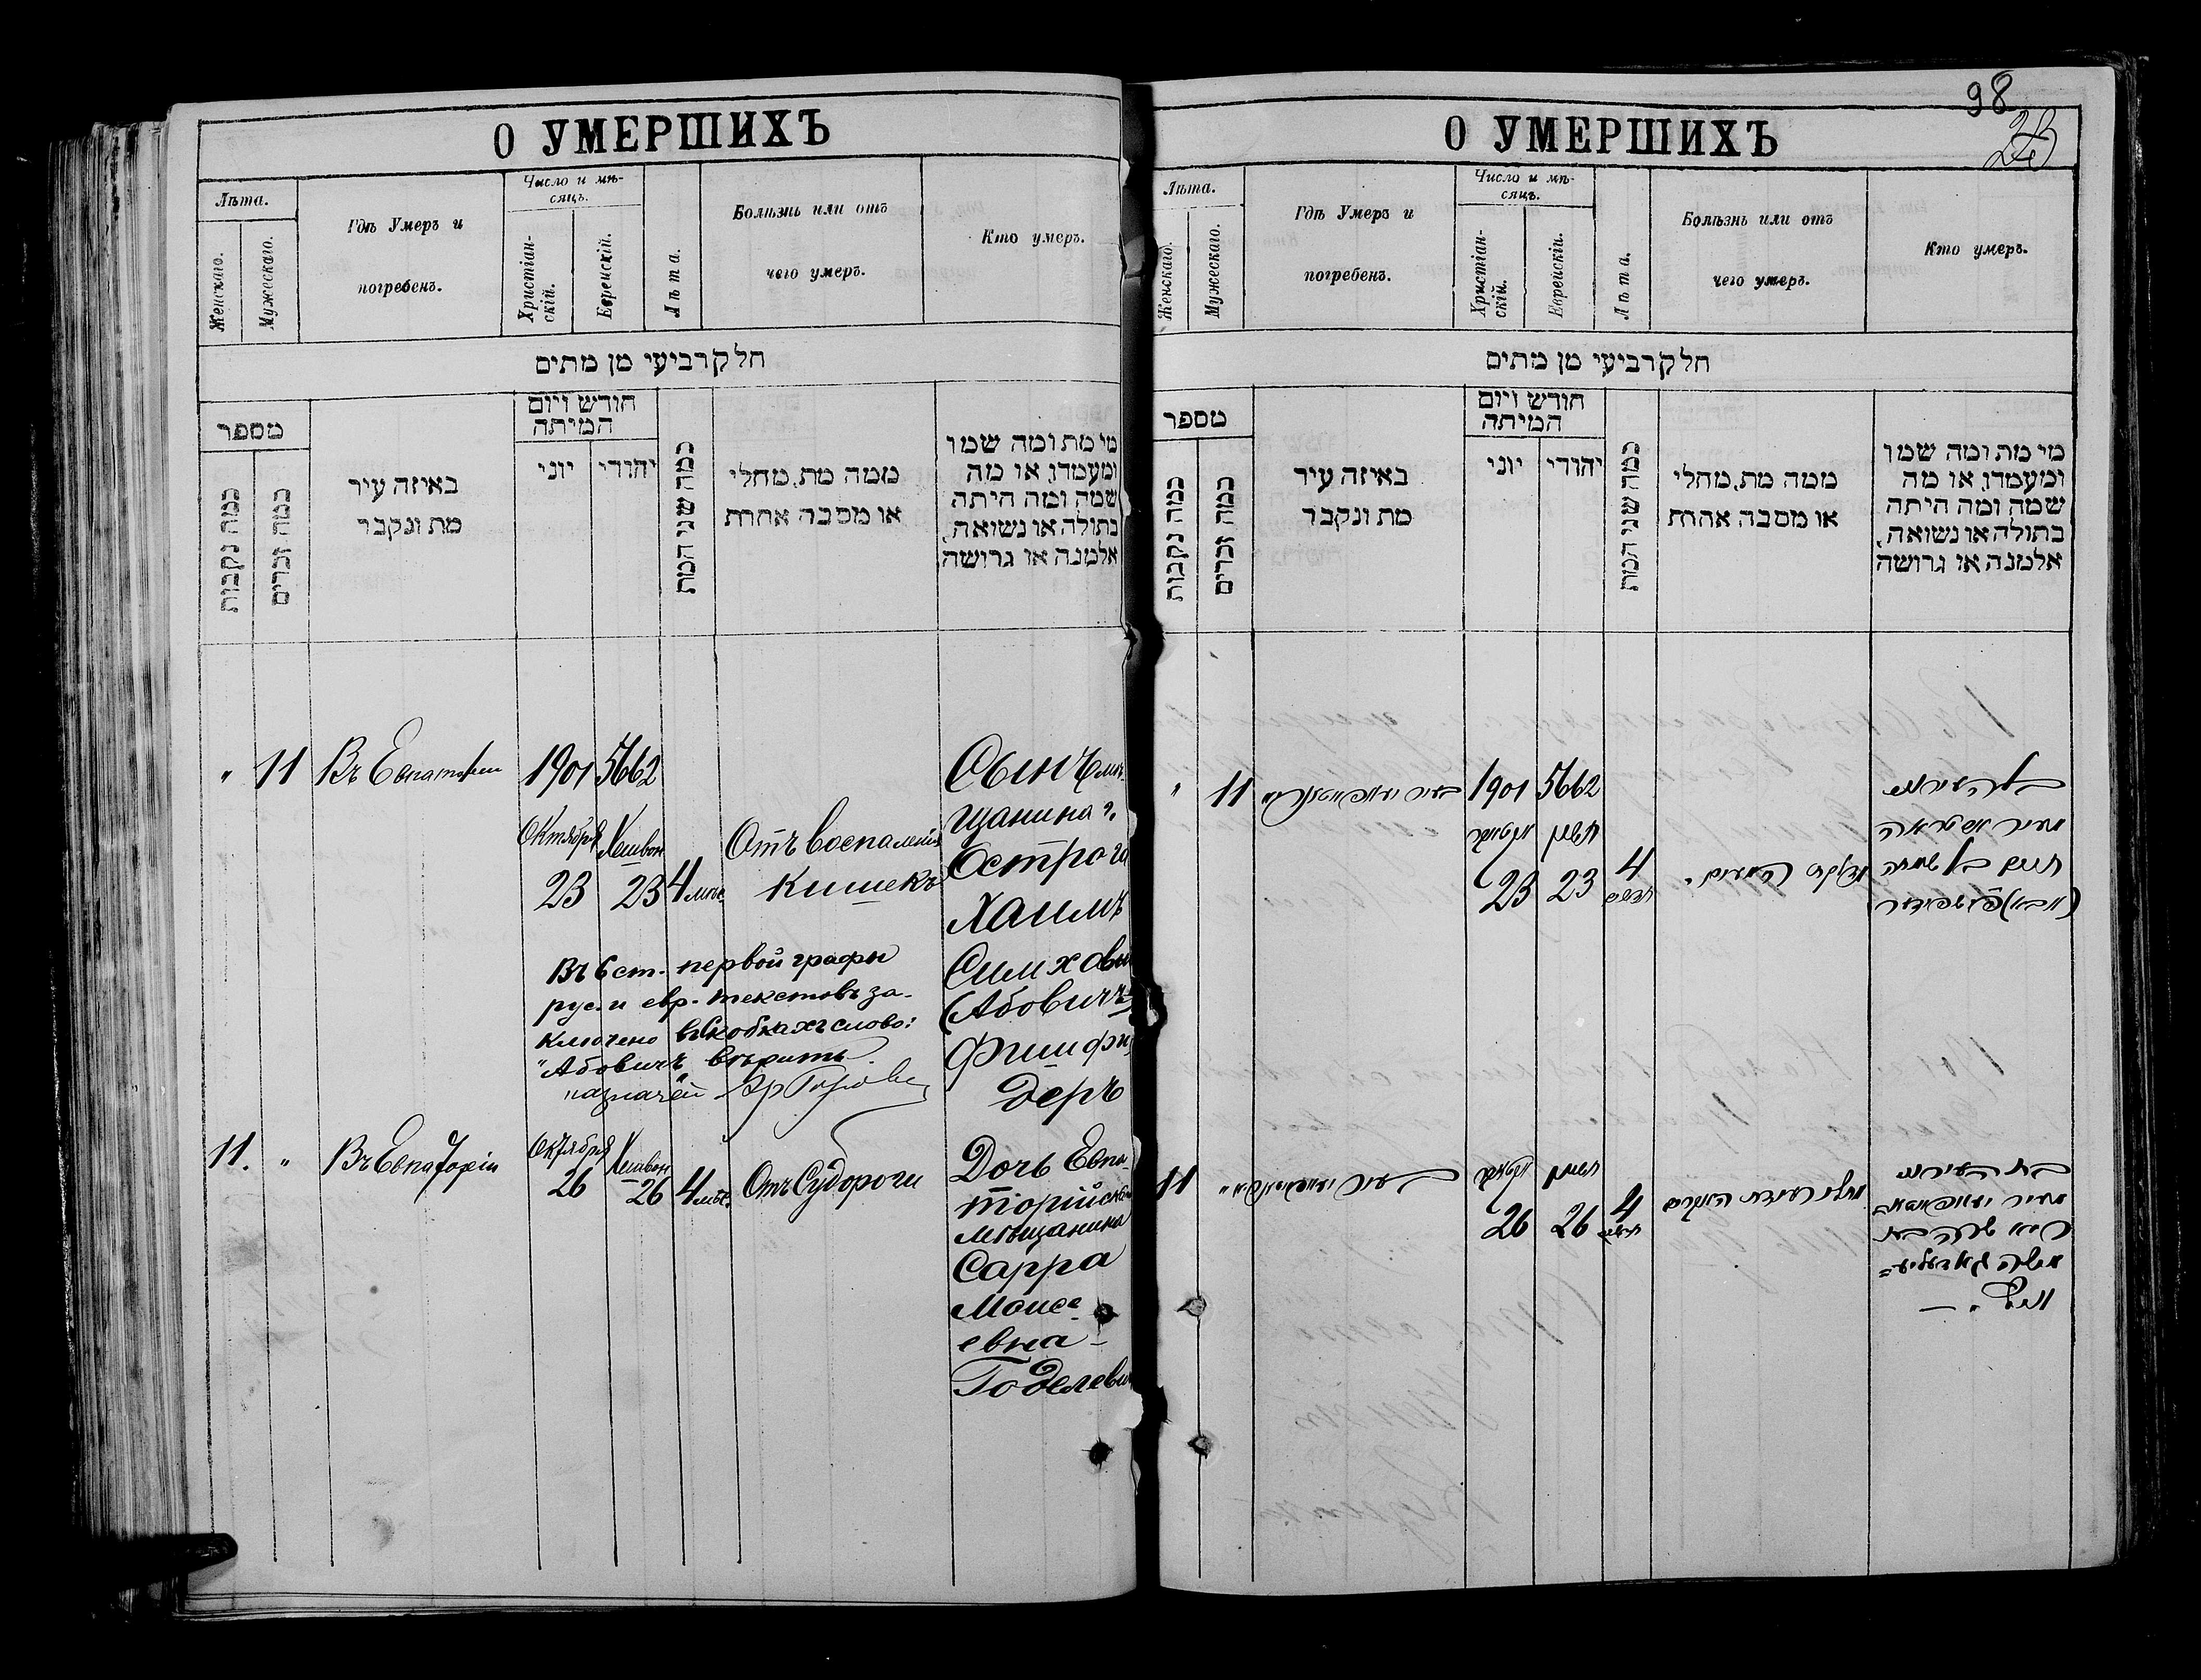 О УМЕРШИХЪ
Лѣта.
Женскаго.
Мужескаго.
Гдѣ Умеръ и
погребенъ.
Число и мѣ-
сяцъ.
Христіан-
скій.
Еврейскій.
Лѣта.
Болѣзнь или отъ
чего умеръ.
Кто умеръ.
חלק רביעי מן מתים
מספר
כמה נקבות
כמה זכרים
באיזה עיר
מת ונקבר
חודש ויום
המיתה
יוני
יהודי
כמה שני המת
ממה מת, מחלי
או מסבה אחרת
מי מת ומה שמו
ומעמדו, או מה
שמה ומה היתה
בתולה או נשואה,
אלמנה או גרושה
" 11 Въ Евпаторіи 1901 5662
Октября Хешвон
23 23 4 мѣс.
Отъ воспаленія
кишекъ
Сынъ мѣ-
щанина г.
Острога
Хаимъ
Симховъ
(Абовичъ)
Фишфи
деръ
Въ 6 ст. первой графы
рус. и евр. текстовъ за-
ключено въ скобкахъ слово:
"Абовичъ" вѣрить.
казначей
11. " Въ Евпаторіи Октября Хешвон
26 26 4 мѣс. Отъ Судороги
Дочь Евпа-
торійска
мѣщанина
Сарра
Моисе-
евна-
Годелеви
98
О УМЕРШИХЪ
Лѣта.
Женскаго.
Мужескаго.
Гдѣ Умеръ и
погребенъ.
Число и мѣ-
сяцъ.
Христіан-
скій.
Еврейскій.
Лѣта.
Болѣзнь или отъ
чего умеръ.
Кто умеръ.
חלק רביעי מן מתים
מספר
כמה נקבות
כמה זכרים
באיזה עיר
מת ונקבר
חודש ויום
המיתה
יוני
יהודי
כמה שני המת
ממה מת, מחלי
או מסבה אחרת
מי מת ומה שמו
ומעמדו, או מה
שמה ומה היתה
בתולה או נשואה,
אלמנה או גרושה
" 11 1901 5662
חשון
23 23 4
חדשים
חיים בן שמחה
11 חשון
26 26 4